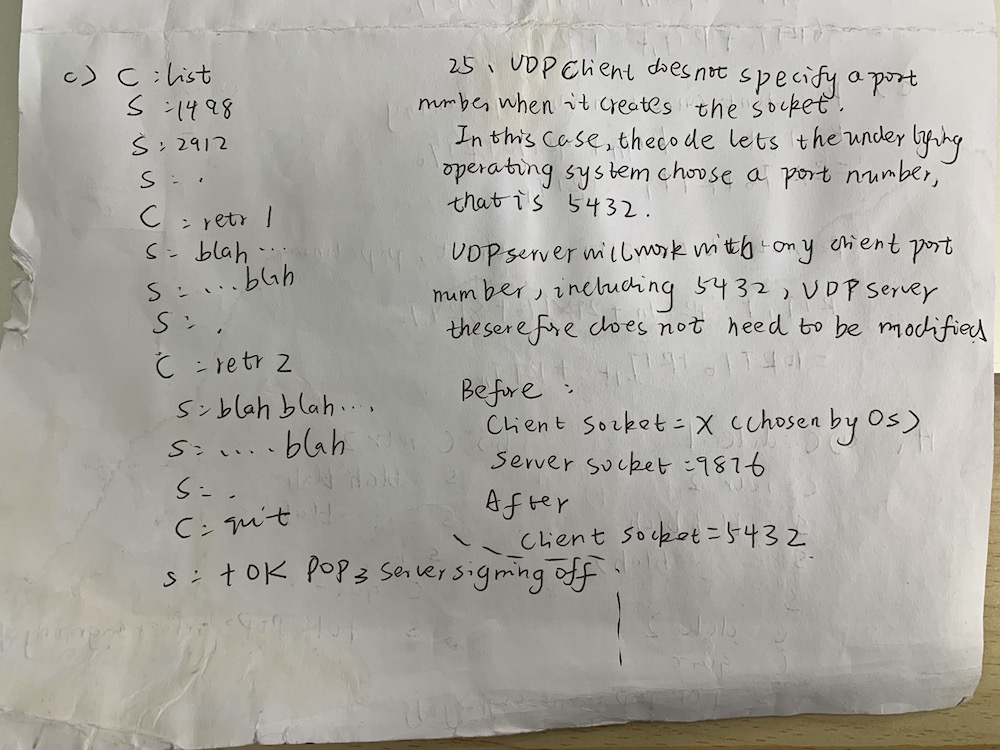 c) C : list
S : 1498
S : 2912
S : .
C : retr 1
S : blah ...
S : ... blah
S : .
C : retr 2
S : blah blah ...
S : .... blah
S : .
C : quit
S : +OK POP3 server signing off .
25、UDP Client does not specify a port
number when it creates the socket.
In this case, the code lets the underlying
operating system choose a port number,
that is 5432.
UDP server will work with any client port
number, including 5432, UDP server
theserefore does not need to be modified
Before :
Client Socket = X (chosen by OS)
Server socket = 9876
After
Client Socket = 5432